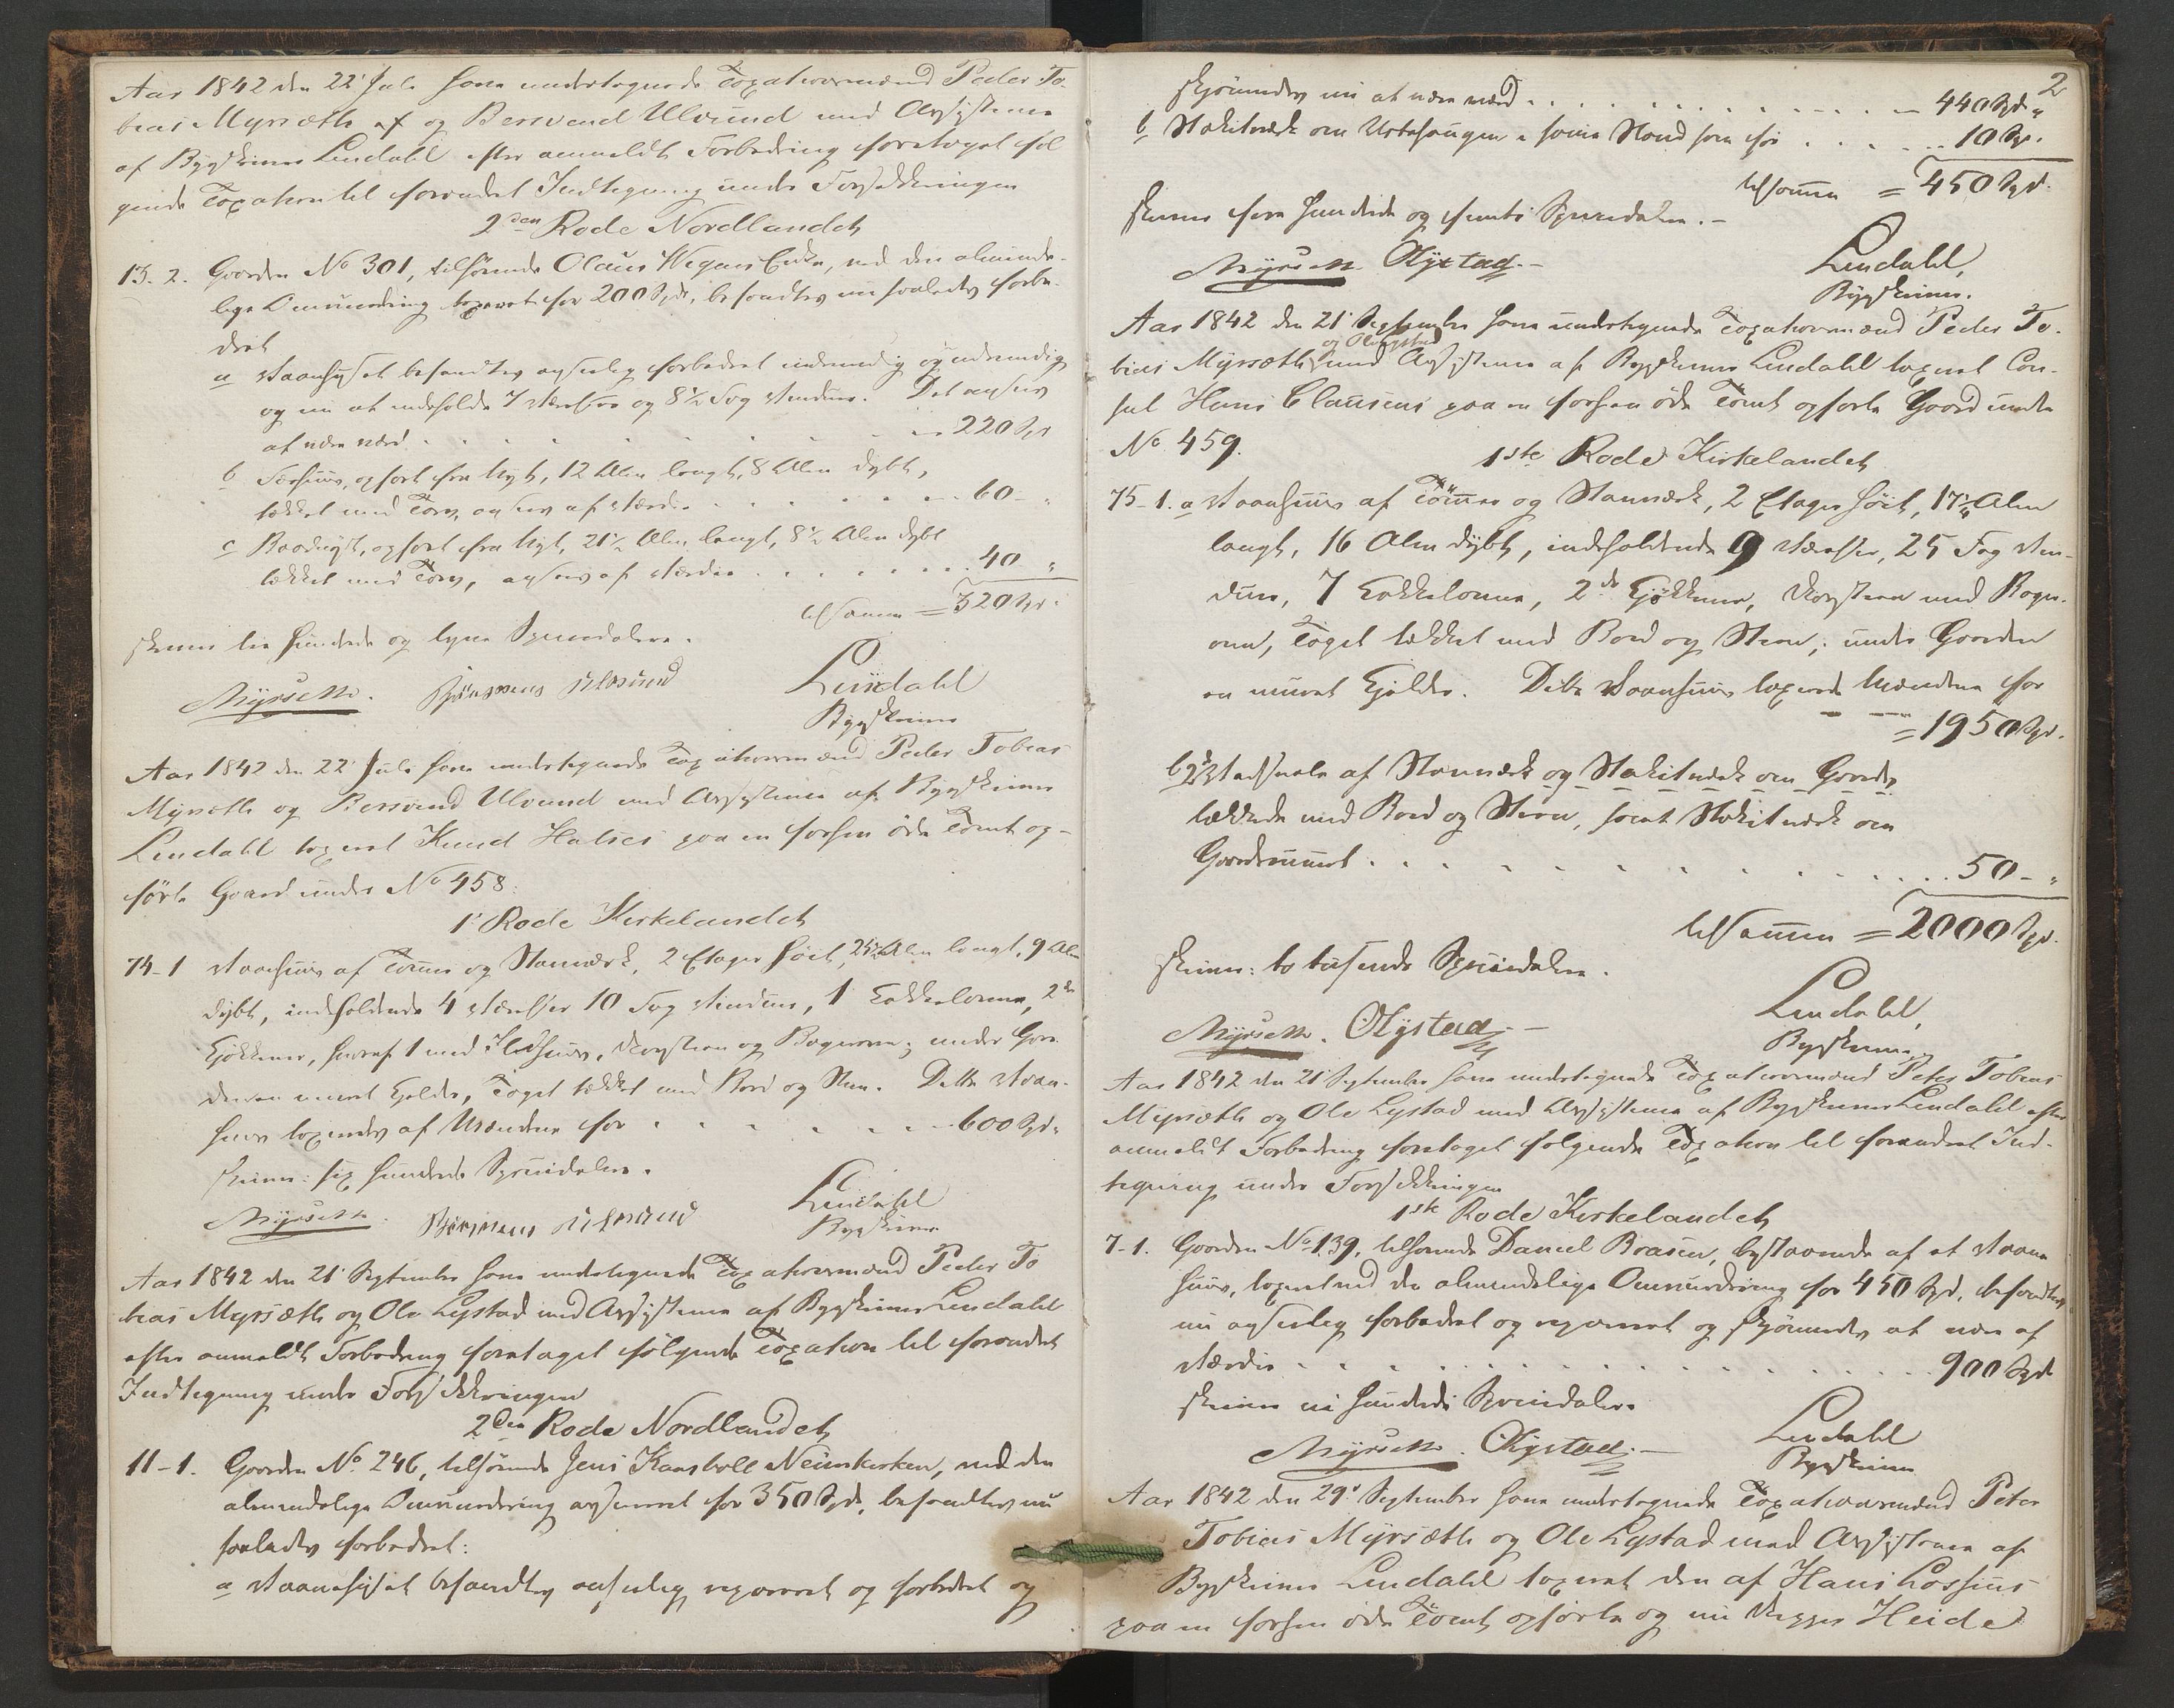 Aar 1842 den 22' Juli have undertegnede Taxationsmænd Peder To-
bias Myrsæth og Bersvend Ulvund med Assistence
af Bygskriver Lindahl efter anmeldt Forbedring foretaget føl
gende Taxation til forandret Indtegning under Forsikkringen
2den Rode Nordlandet
13. 2. Gaarden No 301, tilhørende Olaus Wegans Enke, ved den alminde-
lige Omvurdering taxeret for 200 Spd, befandtes nu saaledes forbe-
dret
a Vaanhuset befandtes anseelig forbedret indvendig og udvendig
og nu at indeholde 7 Værelser og 8½ Fag Vinduer. Det ansees
at være værd . . . . . 220 Spd
b Føehuus, opført fra Nyt, 12 Alen langt, 8 Alen dybt,
tækket med Torv, ansees af Værdie . . . . 60 - "
c Baadnøst, opført fra Nyt, 21½ Alen langt, 8½ Alen dybt
tækket med Torv, ansees af Værdie . . . . 40 "
tilsamen = 320 Spd.
skriver tre hundrede og tyve Speciedalere.
Myrsætth. Ulvund Lindahl
Bygskriver
Aar 1842 den 22' Juli have undertegnede Taxationsmænd Peder Tobias
Myrsæth og Bersvend Ulvund med Assistence af Bygskriver
Lindahl taxeret Knud Halses paa en forhen øde Tomt op-
førte Gaard under No 458:
1' Rode Kirkelandet
74-1 Vaanhuus af Tømer og Stavværk, 2 Etager høit, 25½ Alen langt, 9 Alen
dybt, indeholdende 4 Værelser 10 Fag Vinduer, 1 Kakkelovne, 2de
Kjøkkener, hvoraf 1 med Ildhuus, Skorsteen og Bagerovn; under Gaar
den en muret Kjelder, Taget tækket med Bord og Steen. Dette Vaan-
huus taxeredes af Mændene for . . . . . 600 Spd.
skriver: sex hundrede Speciedalere.
Myrsætth. Ulvund Lindahl
Bygskriver
Aar 1842 den 21' September have undertegnede Taxationsmænd Peder To
bias Myrsæth og Ole Lystad med Assistence af Bygskriver Lindahl
efter anmeldt Forbedring foretaget følgende Taxation til forandret
Indtegning under Forsikkringen
2den Rode Nordlandet
11-1. Gaarden No. 246, tilhørende Jens Kaasbøll Neunkirken, ved den
almindelige Omvurdering ansæt for 350 Spd, befandtes nu
saaledes forbedret:
a Vaanehuset befandtes anseelig repareret og forbedret og
2
skjønnedes nu at være værd . . . . . 440 Spd "
b Stakitværk om Urtehaugen i samme Stand som før . . . . 10 Sp.
tilsamen = 450 Spd.
skriver fire hundrede og femti Speciedalere. -
Myrsætth. OLystad. - Lindahl,
Bygskriver.
Aar 1842 den 21' September have undertegnede Taxationsmænd Peder To-
og OLystad
bias Myrsæth med Assistence af Bygskriver Lindahl taxeret Con-
sul Hans Clausens paa en forhen øde Tomt opførte Gaard under
No 459.
1ste Rode Kirkelandet
75-1. a Vaanhuus af Tømer og Stavværk, 2 Etager høit, 17¼ Alen
langt, 16 Alen dybt, indeholdende 9 Værelser, 25 Fag Vin-
duer, 7 Kakkelovne, 2de Kjøkkener, Skorsteen med Bager-
ovn, Taget tækket med Bord og Steen; under Gaarden
en muret Kjelder. Dette Vaanhuus taxerede Mændene for
= 1950 Spd.
b af Stavværk og Stakitværk om Gaards
tækkede med Bord og Steen, samt Stakitværk om
Gaardsrumet . . . . . 50 - "
tilsamen = 2000 Spd.
skriver: to tusende Speciedalere.
Myrsætth. OLystad. - Lindahl,
Bygskriver
Aar 1842 den 21' September have undertegnede Taxationsmænd Peter Tobias
Myrsæth og Ole Lystad med Assistence af Bygskriver Lindahl efter
anmeldt Forbedring foretaget følgende Taxation til forandret Ind-
tegning under Forsikkringen
1ste Rode Kirkelandet
7-1. Gaarden No 139, tilhørende Daniel Braseu, bestaaende af et Vaane
huus, taxeret ved den almindelige Omvurdering for 450 Spd, befandtes
nu anseelig forbedret og repareret og skjønnedes at være af
Værdie . . . . . 900 Spd
skriver ni hundrede Speciedalere
Myrsætth. OLystad. - Lindahl
Bygskriver
Aar 1842 den 29' September have undertegnede Taxationsmænd Peter
Tobias Myrsæth og Ole Lystad med Assistence af
Bygskriver Lindahl taxeret den af Hans Lossius
paa en forhen øde Tomt opførte og nu Skipper Heide